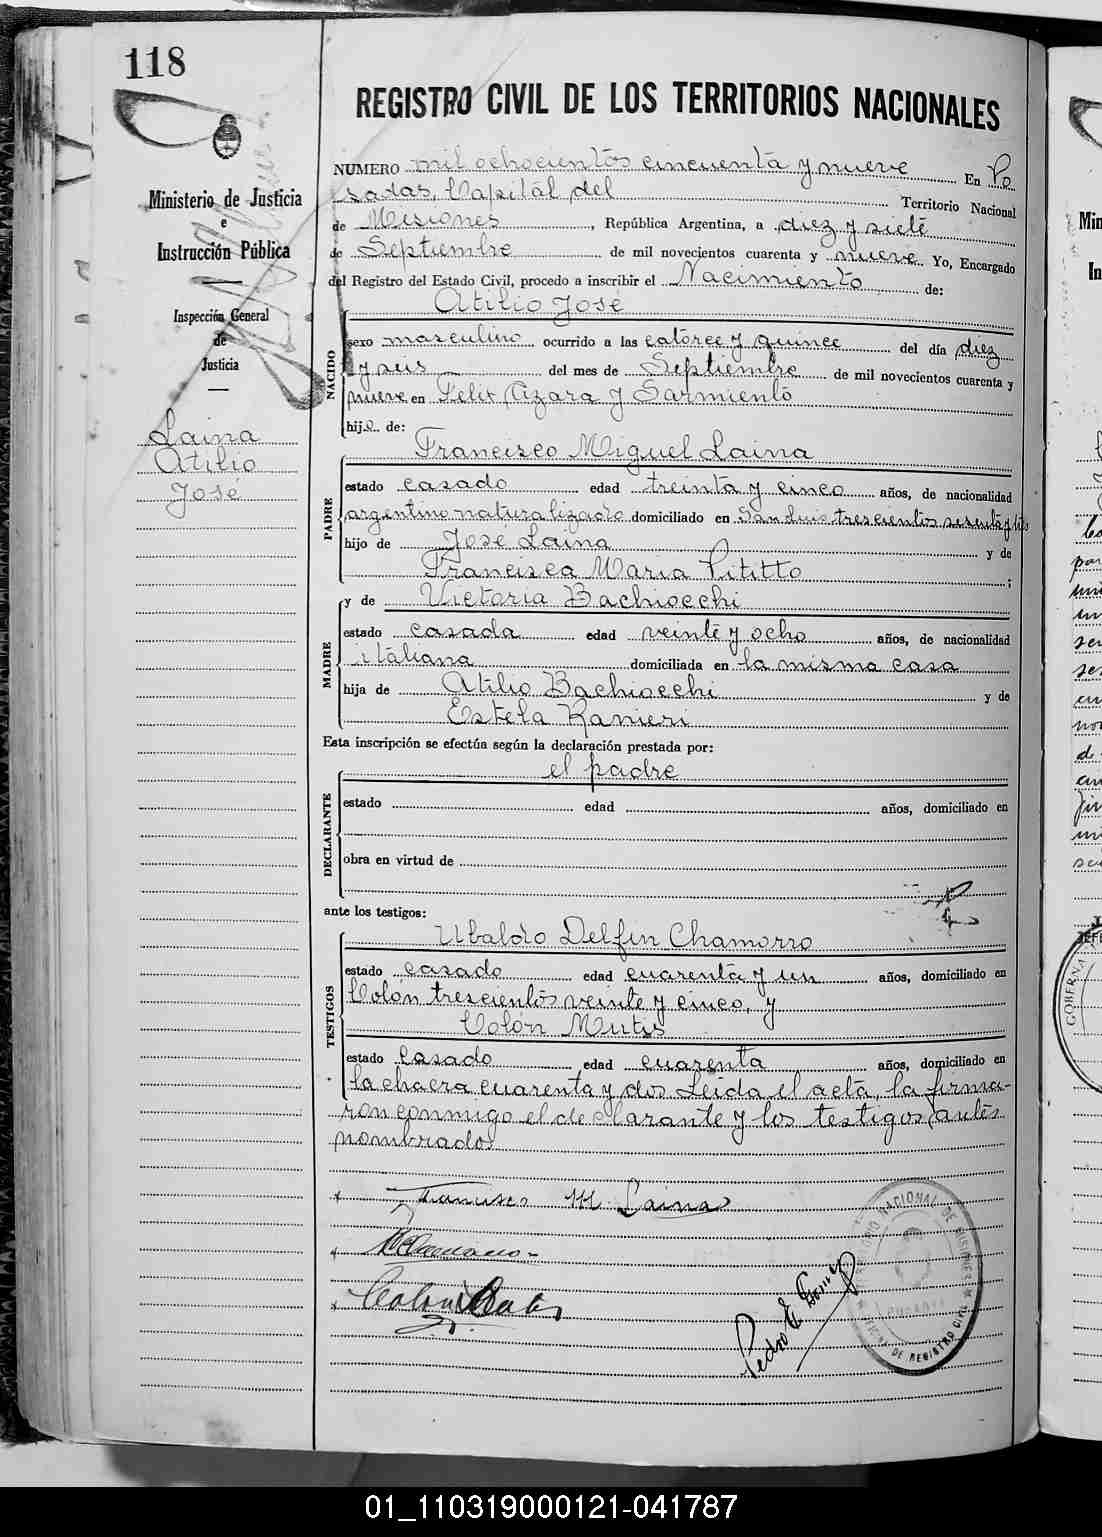 118
REGISTRO CIVIL DE LOS TERRITORIOS NACIONALES
Ministerio de Justicia
e
Instrucción Pública
Inspección General
de
Justicia
Laina
Atilio
José
NUMERO mil ochocientos cincuenta y nueve En Po
sadas, Capital del Territorio Nacional
de Misiones, República Argentina, a diez y siete
de Septiembre de mil novecientos cuarenta y nueve Yo, Encargado
del Registro del Estado Civil, procedo a inscribir el Nacimiento de:
NACIDO
Atilio José
sexo masculino ocurrido a las catorce y quince del día diez
y seis del mes de Septiembre de mil novecientos cuarenta y
nueve en Felix Azara y Sarmiento
hijo de:
PADRE
Francisco Miguel Laina
estado casado edad treinta y cinco años, de nacionalidad
argentino naturalizado domiciliado en San Luis trescientos sesenta y
hijo de José Laina y de
Francisca Maria Pititto;
MADRE
y de Victoria Bachiocchi
estado casada edad veinte y ocho años, de nacionalidad
italiana domiciliada en la misma casa
hija de Atilio Bachiocchi y de
Estela Ranieri
Esta inscripción se efectúa según la declaración prestada por:
DECLARANTE
el padre
estado edad años, domiciliado en
obra en virtud de
ante los testigos:
TESTIGOS
Ubaldo Delfin Chamorro
estado casado edad cuarenta y un años, domiciliado en
Colón trescientos veinte y cinco, y
Colón Mutis
estado casado edad cuarenta años, domiciliado en
la chacra cuarenta y dos Leida el acta, la firma-
ron conmigo el declarante y los testigos antes
nombrados
Francisco M Laina
Pedro E Gomez
TERRITORIO NACIONAL DE MISIONES
OFICINA DE REGISTRO CIVIL
GOBERNA
01_110319000121-041787